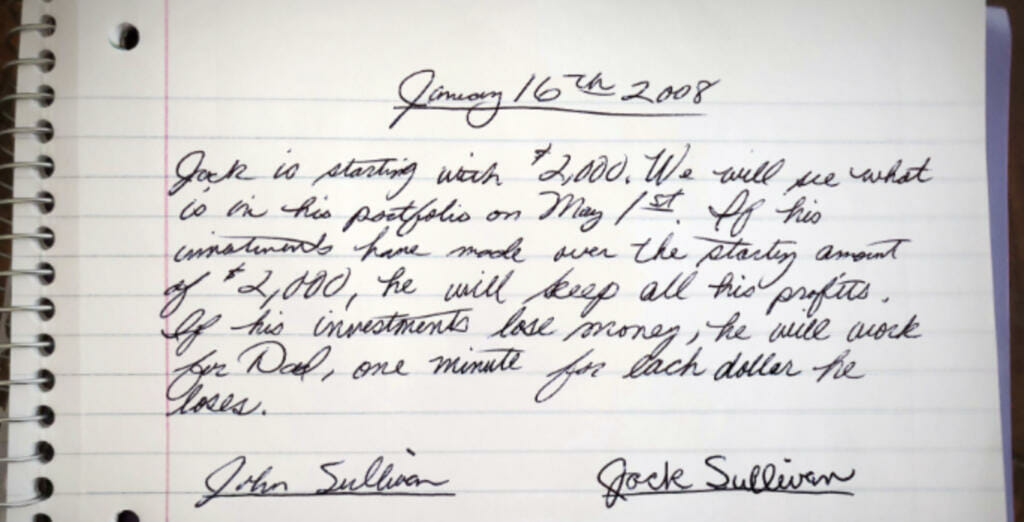 January 16th 2008
Jack is starting with $2,000. We will see what
is in his portfolio on May 1st. If his
investments have made over the starting amount
of $2,000, he will keep all his profits.
If his investments lose money, he will work
for Dad, one minute for each dollar he
loses.
John Sullivan Jack Sullivan